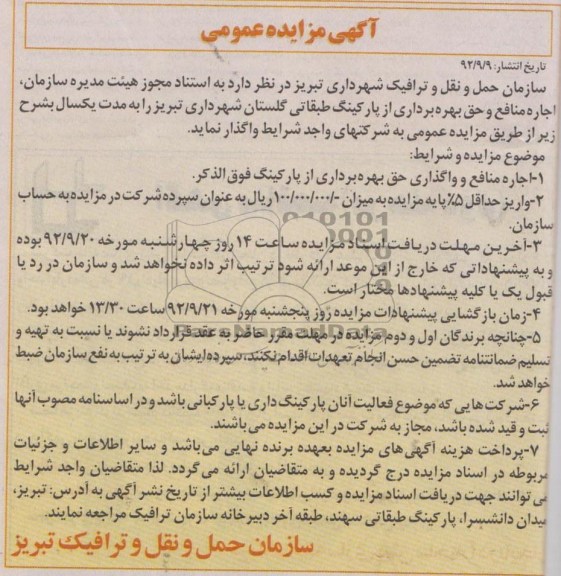 آگهی مزایده عمومی
تاریخ انتشار: ۹۲/۹/۹
سازمان حمل و نقل و ترافیک شهرداری تبریز در نظر دارد به استناد مجوز هیئت مدیره سازمان،
اجاره منافع و حق بهره برداری از پارکینگ طبقاتی گلستان شهرداری تبریز را به مدت یکسال بشرح
زیر از طریق مزایده عمومی به شرکتهای واجد شرایط واگذار نماید.
موضوع مزایده و شرایط:
۱-اجاره منافع و واگذاری حق بهره برداری از پارکینگ فوق الذکر.
۲-واریز حداقل ۵٪ پایه مزایده به میزان -/۱۰۰/۰۰۰/۰۰۰ ریال به عنوان سپرده شرکت در مزایده به حساب
سازمان.
۳-آخرین مهلت دریافت اسناد مزایده ساعت ۱۴ روز چهارشنبه مورخه ۹۲/۹/۲۰ بوده
و به پیشنهاداتی که خارج از این موعد ارائه شود ترتیب اثر داده نخواهد شد و سازمان در رد یا
قبول یک یا کلیه پیشنهادها مختار است.
۴-زمان بازگشایی پیشنهادات مزایده روز پنجشنبه مورخه ۹۲/۹/۲۱ ساعت ۱۳/۳۰ خواهد بود.
۵-چنانچه برندگان اول و دوم مزایده در مهلت مقرر حاضر به عقد قرارداد نشوند یا نسبت به تهیه و
تسلیم ضمانتنامه تضمین حسن انجام تعهدات اقدام نکنند، سپرده ایشان به ترتیب به نفع سازمان ضبط
خواهد شد.
۶-شرکت هایی که موضوع فعالیت آنان پارکینگ داری یا پارکبانی باشد و در اساسنامه مصوب آنها
ثبت و قید شده باشد، مجاز به شرکت در این مزایده می باشند.
۷-پرداخت هزینه آگهی های مزایده بعهده برنده نهایی می باشد و سایر اطلاعات و جزئیات
مربوطه در اسناد مزایده درج گردیده و به متقاضیان ارائه می گردد. لذا متقاضیان واجد شرایط
می توانند جهت دریافت اسناد مزایده و کسب اطلاعات بیشتر از تاریخ نشر آگهی به آدرس: تبریز،
میدان دانشسرا، پارکینگ طبقاتی سهند، طبقه آخر دبیرخانه سازمان ترافیک مراجعه نمایند.
سازمان حمل و نقل و ترافیک تبریز